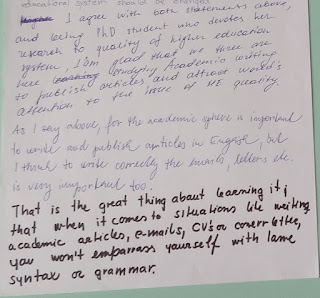 educational system should be changed.
I agree with both statements above,
and being PhD student who devotes her
research to quality of higher education
system, I am glad that we three are
here studying Academic writing
to publish articles and attract world's
attention to the issue of HE quality.
As I say above, for the academic sphere is important
to write and publish articles in English, but
I think to write correctly the emails, letters etc.
is very important too.
That is the great thing about learning it;
that when it comes to situations like writing
academic articles, e-mails, CV's or coverr letter,
you won't emparrass yourself with lame
syntax or grammar.